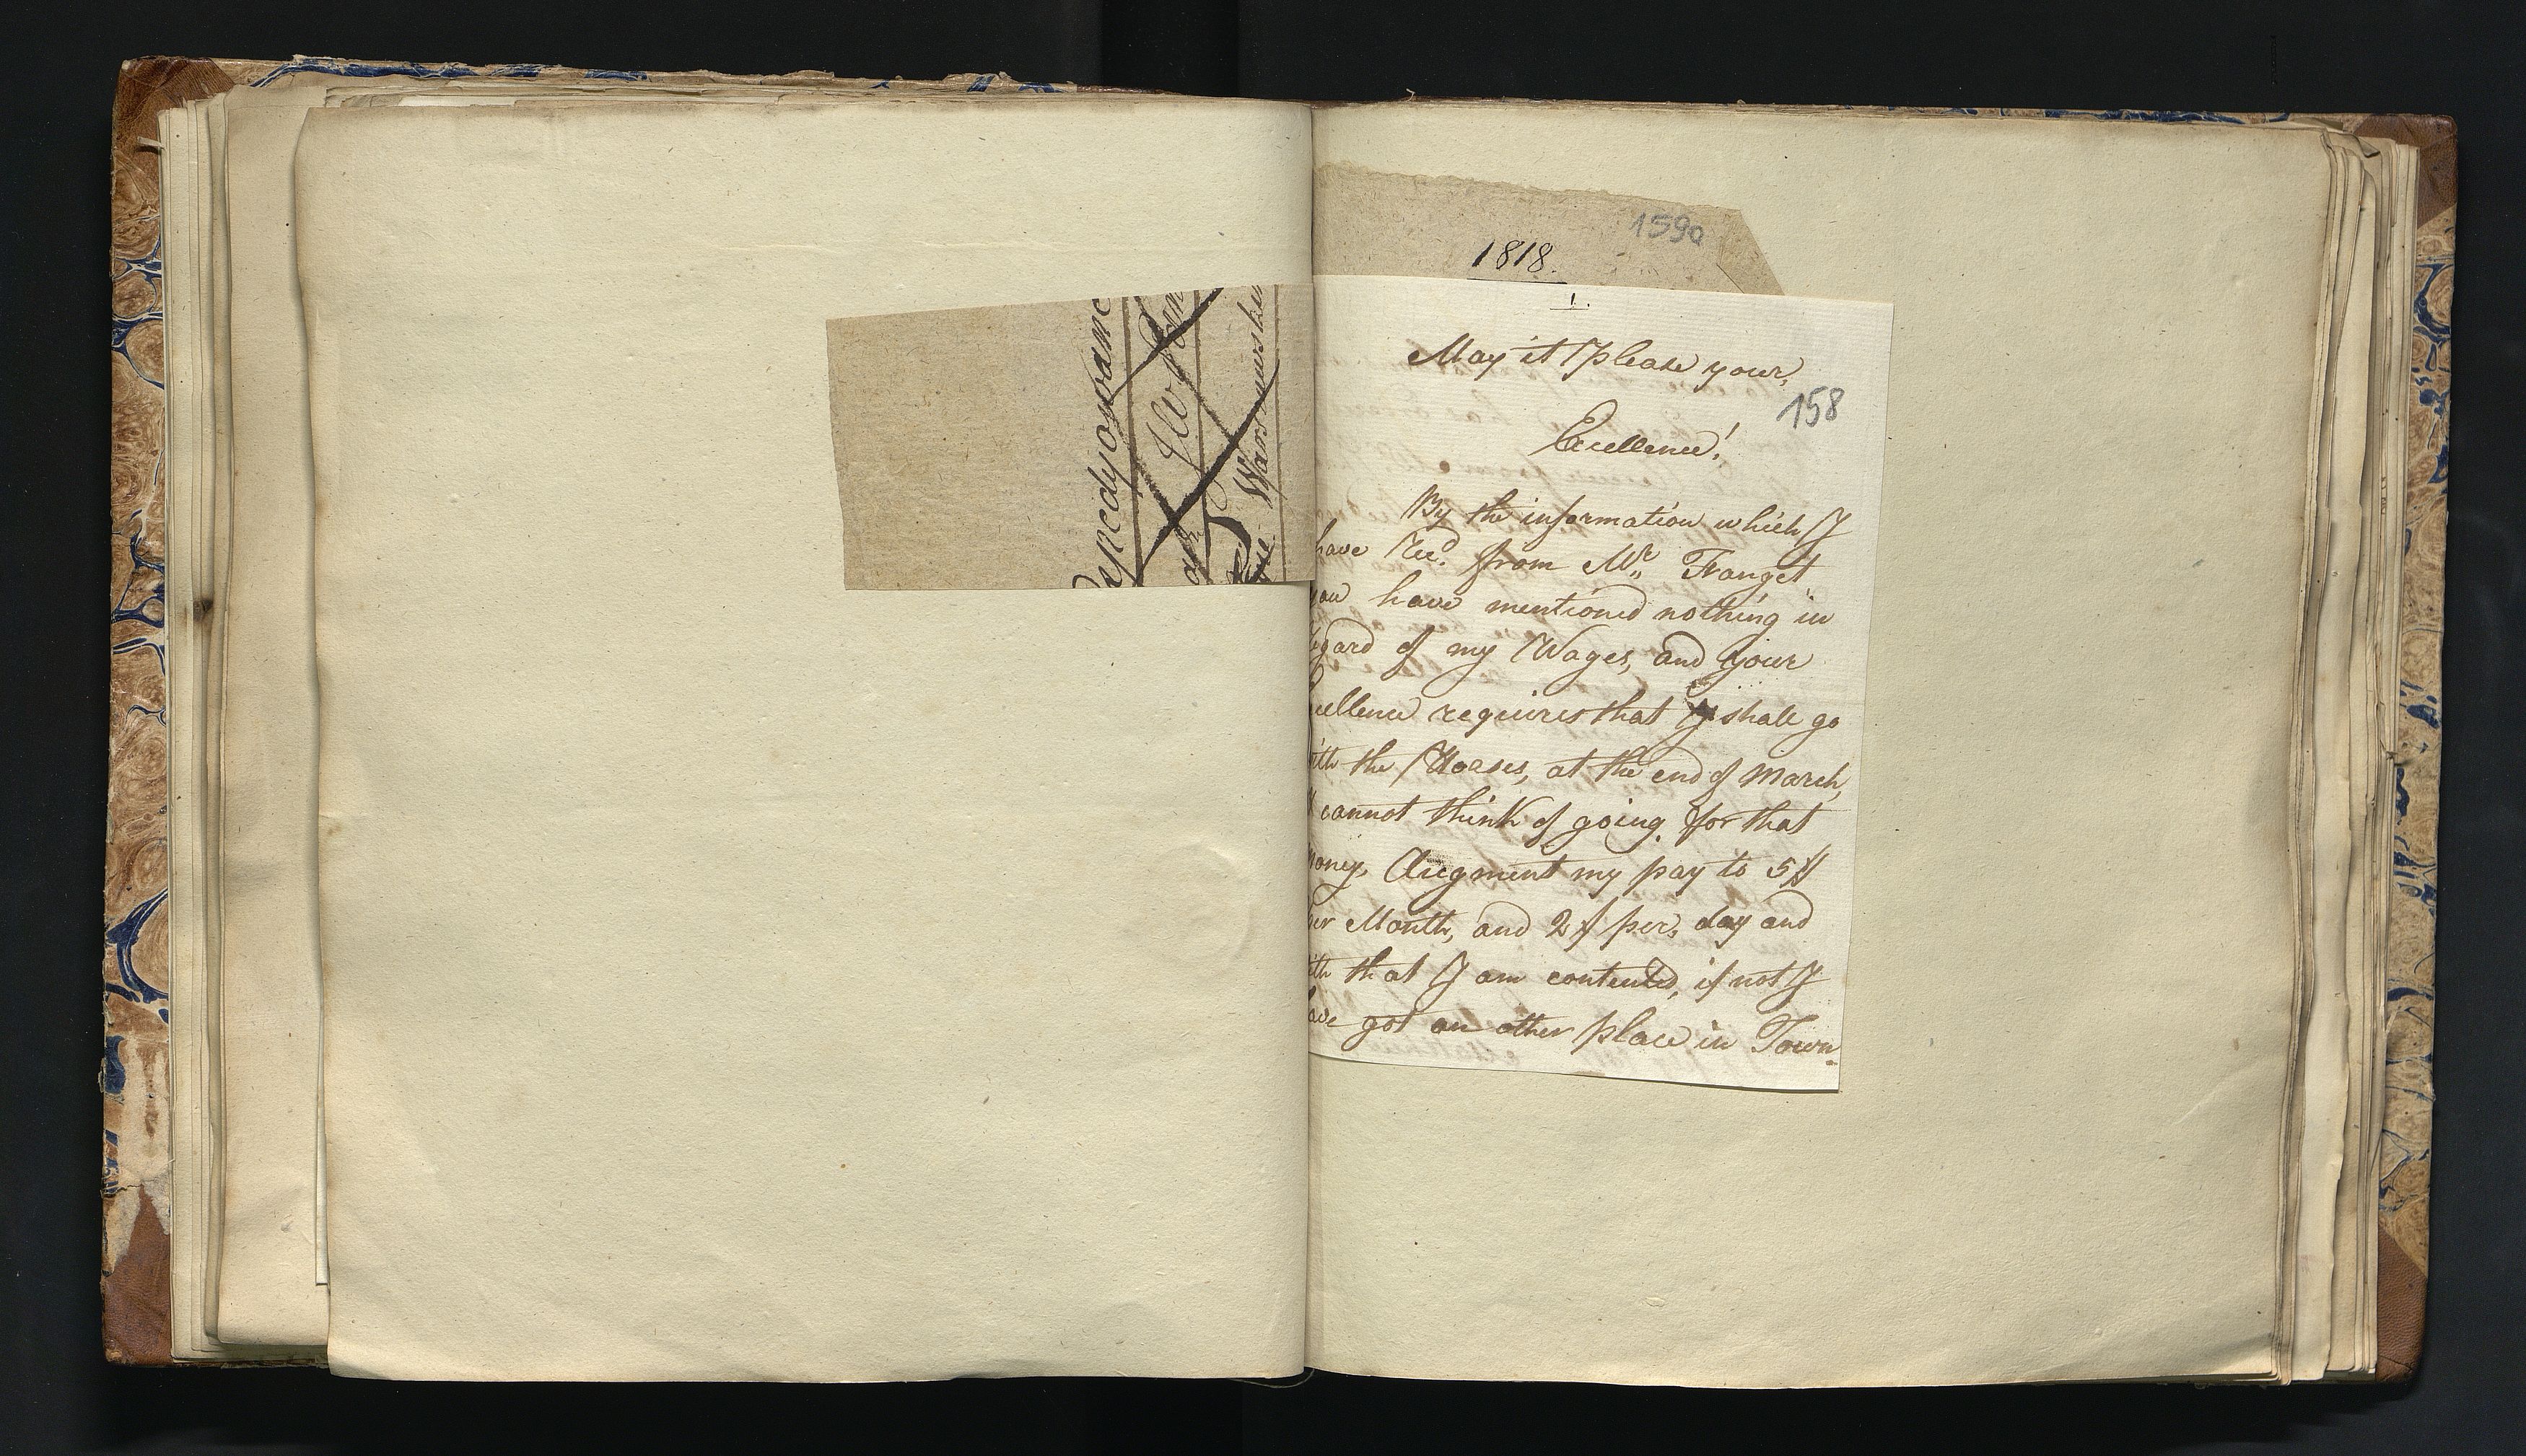 1590
1818.
1.
May it Please your,
158
Excellence!
By the information which I
have Recd. from Mr. Franget
you have mentioned nothing in
regard of my Wages, and your
cellence requires that I shall go
ith the Horses, at the end of March,
cannot think of going. for that
oney, Augment my pay to 5 #
per Month, and 2 f per, day and
ith that I am contented, if not I
ave got an other place in Town.